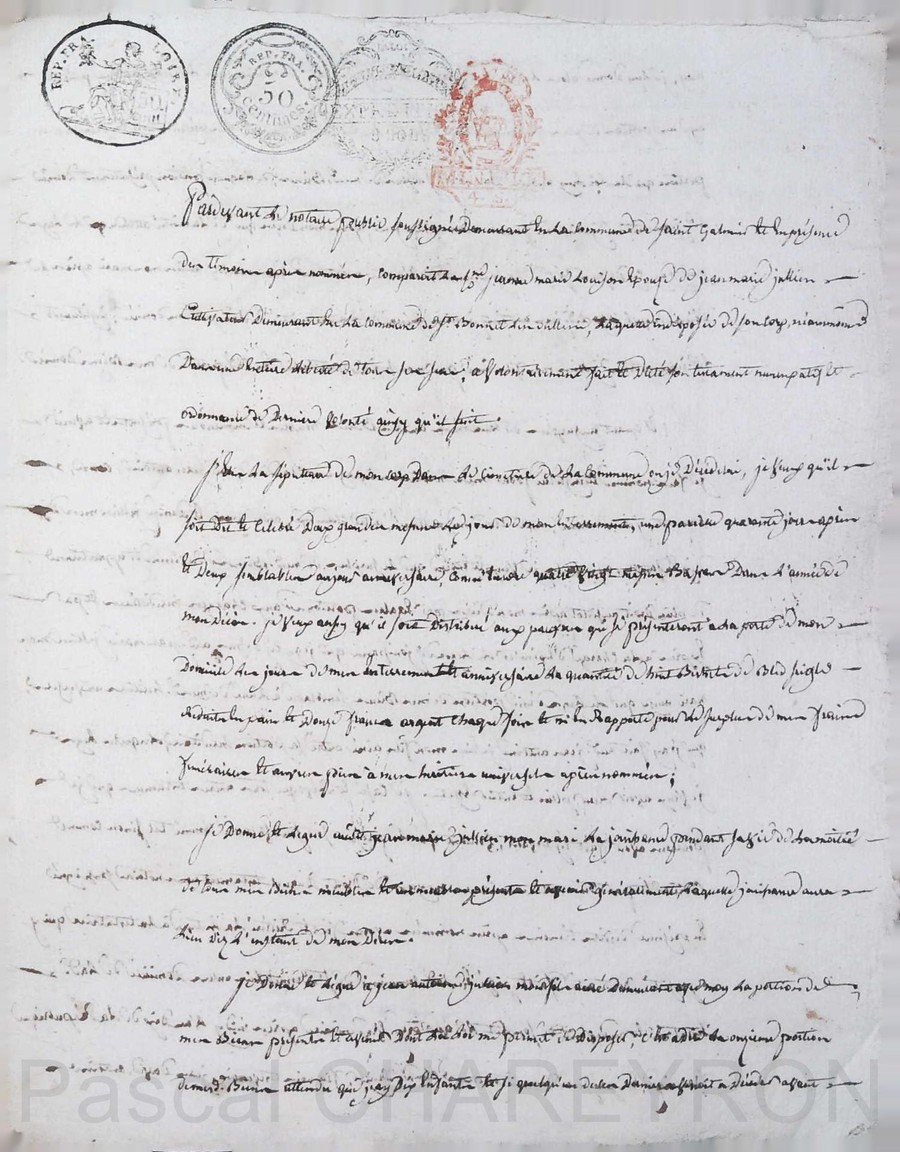 REP. FRA. LOIRE
50
REP. FRA.
50
centimes
Pardevant le notaire public soussigné Demeurant En la commune de Saint Galmier et En présence
des temoins après nommés, comparait la f.e jeronne marie Louison Epouse de jean marie jullien
Cultivateur Demeurant En la commune de S.t Bonnet Laquelle indisposée de son corp, néanmoins
Dans une Entiere liberté de tous ses sens, a Volontairement fait et Dicté son testament nuncupatif et
ordonnance de Derniere Volonté ainsy qu'il suit.
j'Elis La sépulture de mon corp Dans le cimetiere de La Commune ou je Décederai, je Veux qu'il
soit Dit et Célébré Deux grandes messes Le jour de mon Enterrement, une pareille quarante jours après
et Deux semblables au jour anniversaire, Comm'encore quatre Vingt messes Basses Dans L'année de
mon Décès. je Veux aussy qu'il soit Distribué aux pauvres qui se présenteront a La porte de mon
Domicile Les jours de mon Enterrement et anniversaire La quantité de huit Bichets de Bled seigle
réduits En pain et Douze francs argent Chaque fois et m'En Rapporte pour Le surplus de mes fraix
funéraires et œuvres pieux à mon héritier universel après nommé;
je Donne et Legue audit jean marie jullien mon mari La jouissance pendant sa Vie de La moitié
de tous mes Biens meubles et immeubles présents et avenir généralement, Laquelle jouissance aura
Lieu Dez L'instant de mon Décès.
je Donne et Legue à jean antoine jullien mon fils ainé Demeurant avec moy La portion de
mes Biens présents et avenir Dont La Loi me permet de Disposer, c'est adire La onzieme portion
de mesd. Biens attendu que j'ay Dix Enfants et si quelqu'un de ces Derniers Venoit a Décéder avant
Pascal CHAREYRON